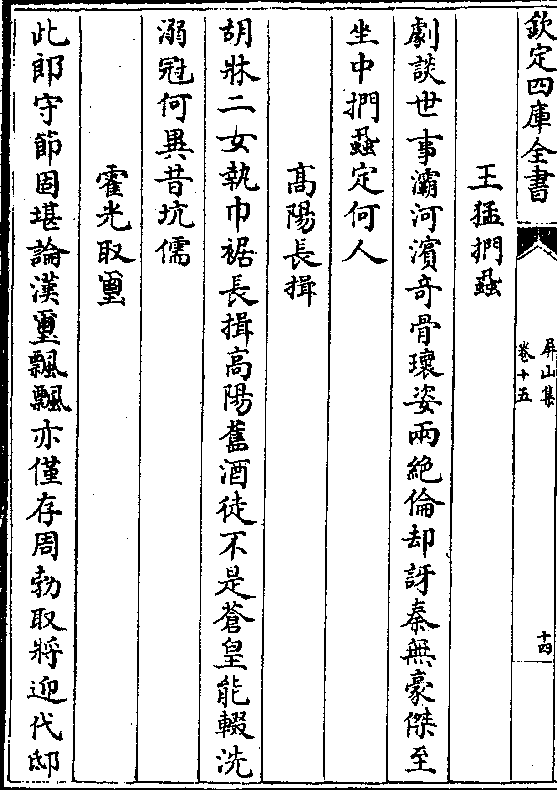 欽定四庫全書
屏山集
卷十五
十四
王猛捫蝨
劇談世事灞河濱奇骨瓌姿兩絶倫却訝秦無豪傑至
坐中捫蝨定何人
髙陽長揖
胡牀二女執巾裾長揖高陽舊酒徒不是蒼皇能輟洗
溺冠何異昔坑儒
霍光取璽
此郎守節固堪論漢璽飄飄亦僅存周勃取將迎代邸